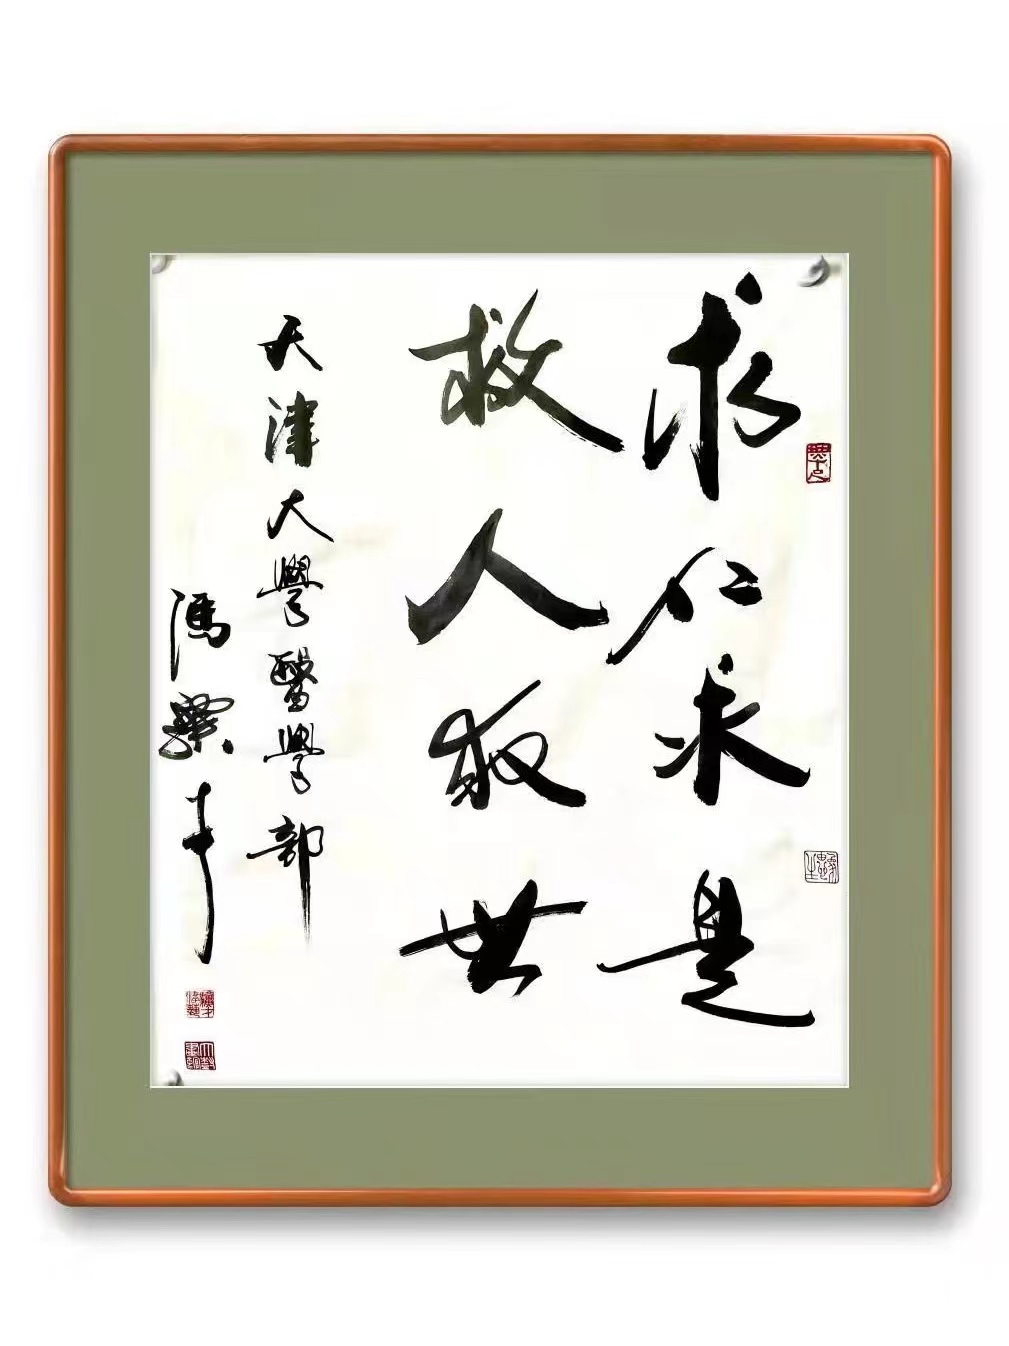 求仁求是
救人救世
天津大學醫學部
馮驥才